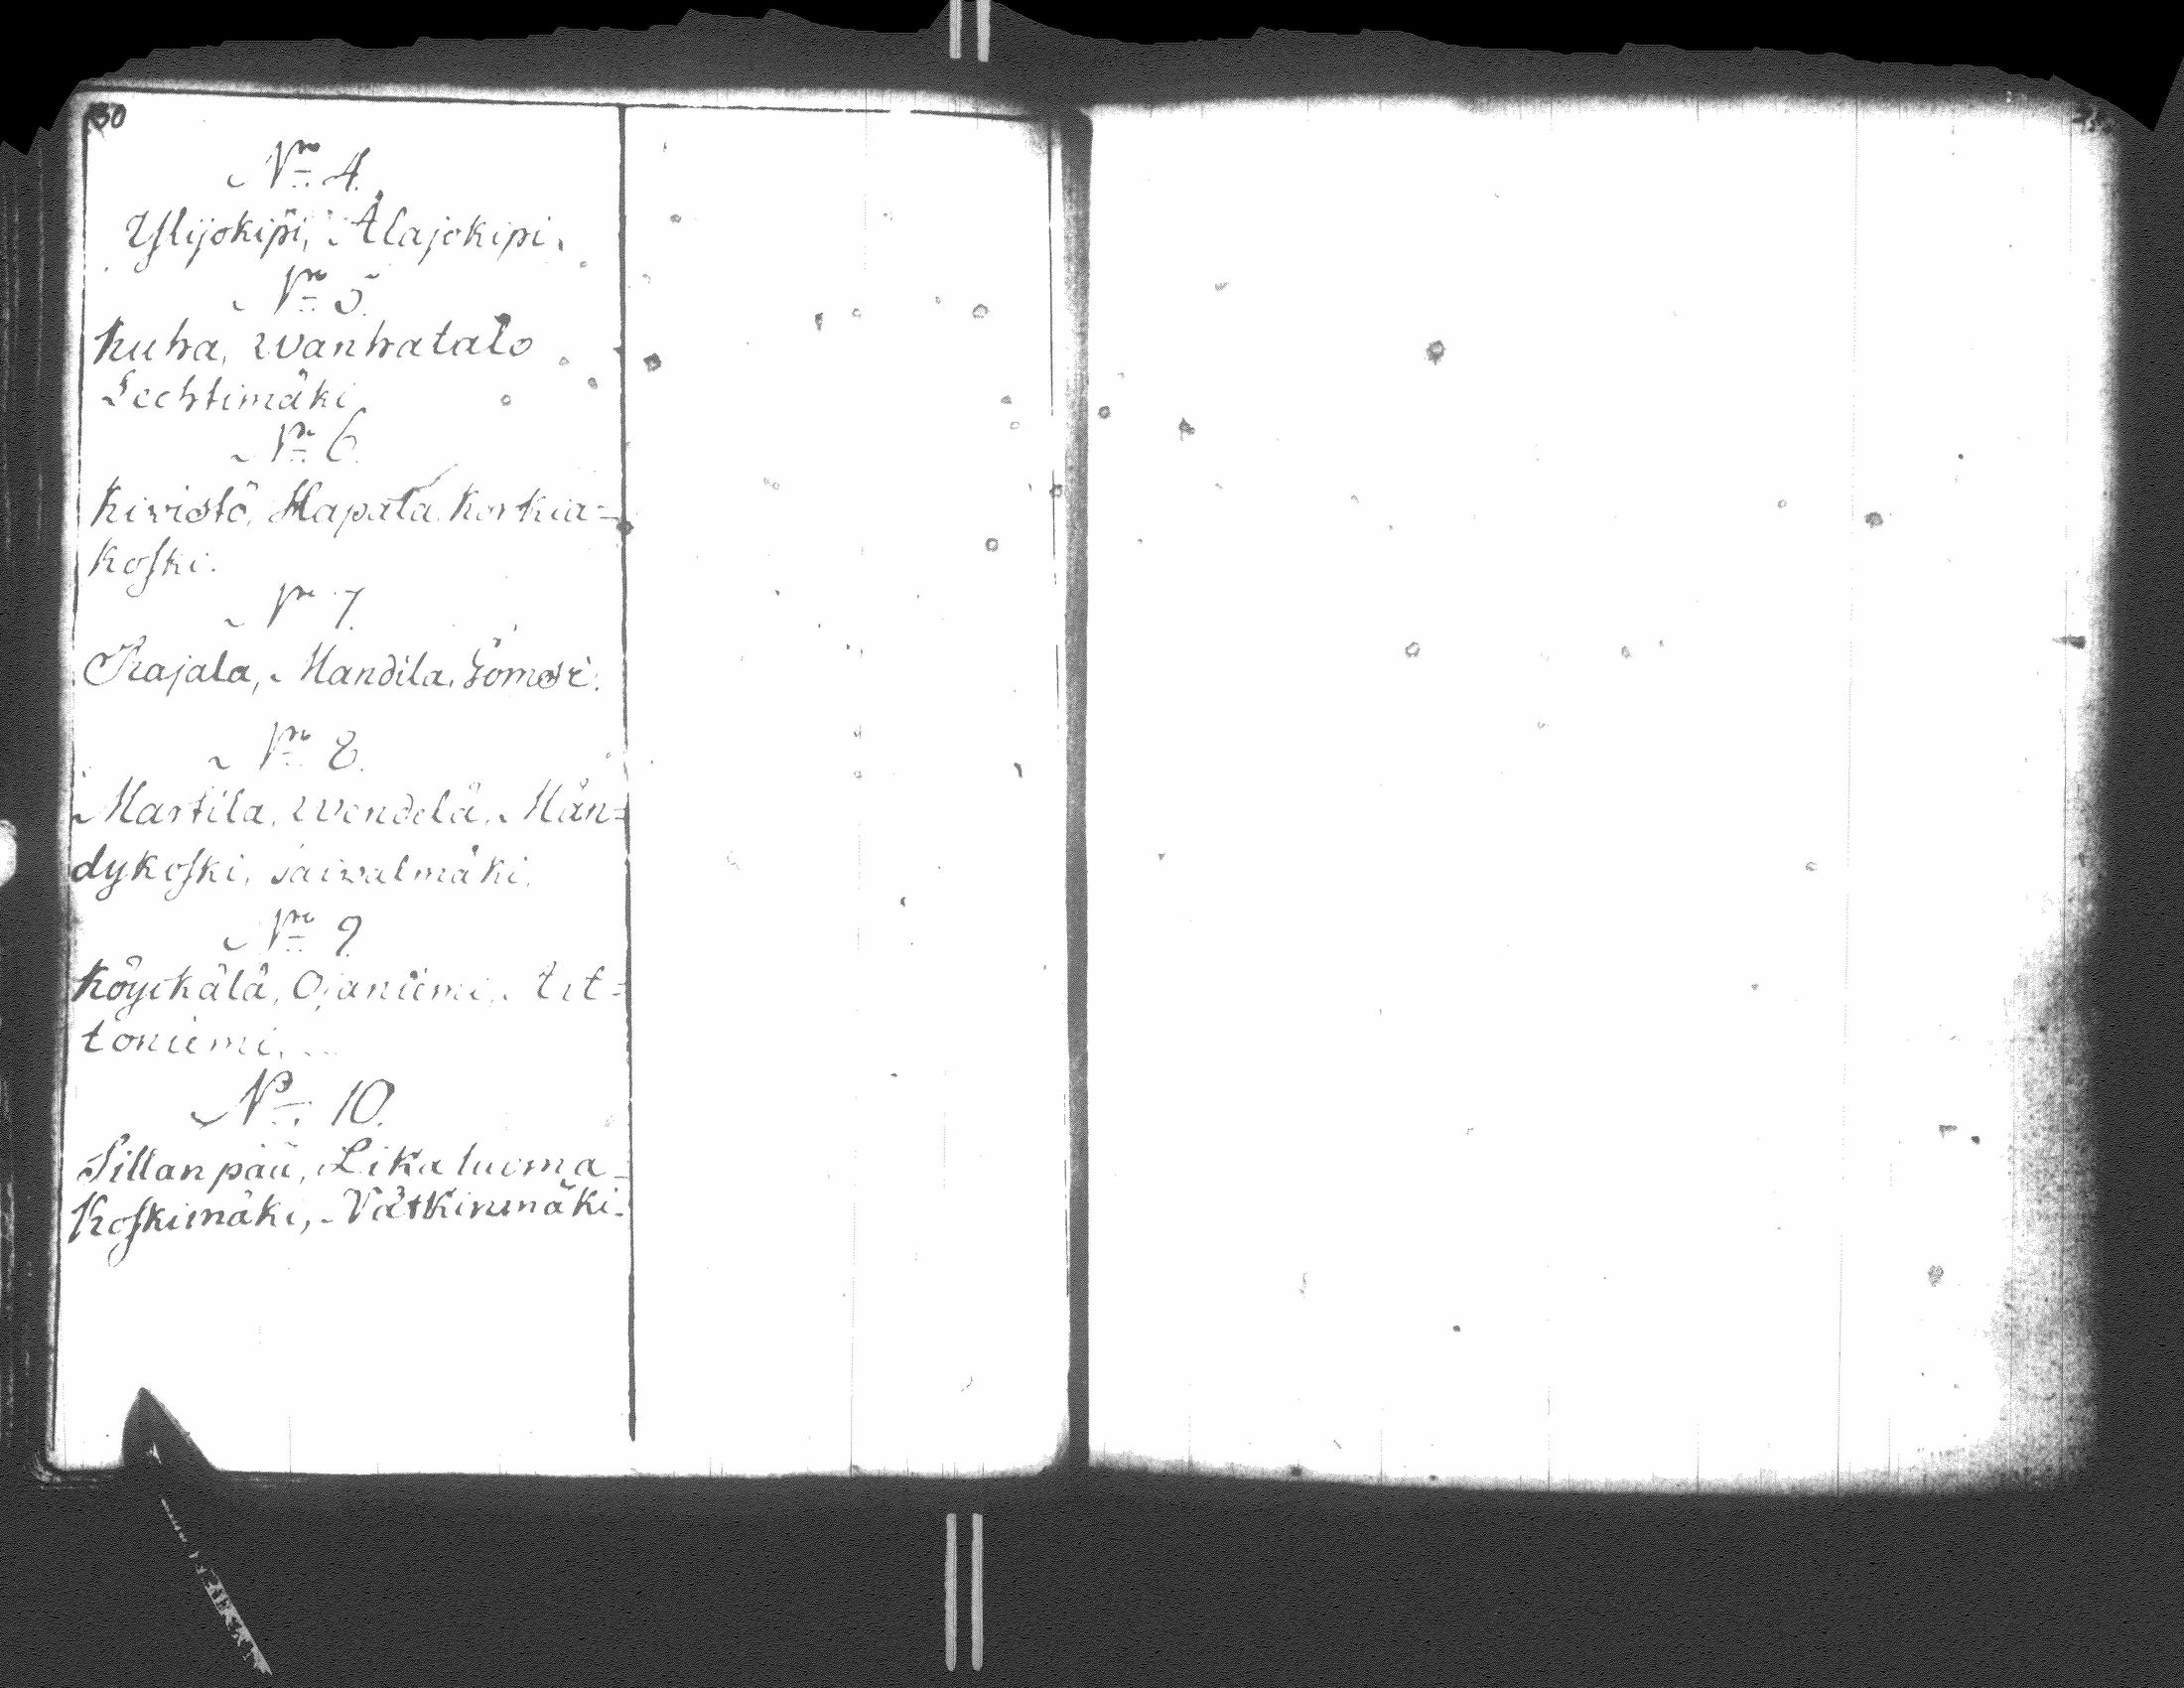 50
Nro 4.
Ylijokipi, Alajokipi.
Nro 5.
Kuha, Wanhatalo
Lechtimäki
Nro 6.
Kivistö, Hapala, Korkia=
koski.
Nro 7.
Rajala, Mandila,
Nro 8.
Martila, Wendelä, Män=
dykoski, Saiwalmäki.
Nro 9.
Köyckälä, Ojaniemi, Tit=
toniemi,
Nro 10.
Sillanpää, Likaluoma
Koskimäki, Vätkinmäki.